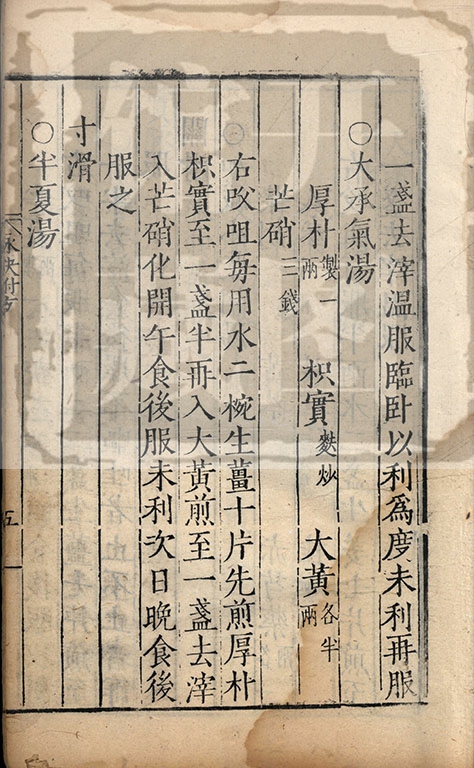 一盞去滓溫服臨卧以利為度未利再服
○大承氣湯
厚朴製一兩 枳實麩炒 大黃各半兩
芒硝三錢
右㕮咀每用水二椀生薑十片先煎厚朴
枳實至一盞半再入大黃煎至一盞去滓
入芒硝化開午食後服未利次日晚食後
服之
寸滑
○半夏湯
五